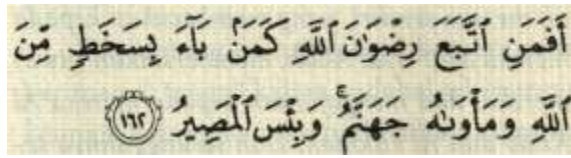 أَفَمَنِ ٱتَّبَعَ رِضْوَٰنَ ٱللَّهِ كَمَنۢ بَآءَ بِسَخَطٍ مِّنَ
ٱللَّهِ وَمَأْوَىٰهُ جَهَنَّمُ ۚ وَبِئْسَ ٱلْمَصِيرُ ١٦٢